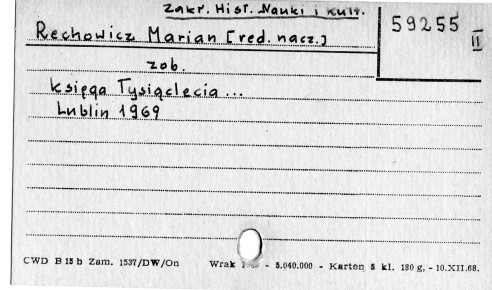 Zakł. Hist. Nauki i Kult.
59255
II
Rechowicz Marian [red. nacz.]
zob.
Księga Tysiąclecia ...
Lublin 1969
CWD B 15 b Zam. 1537/DW/On Wrak - 5.040.000 - Karton 5 kl. 180 g, - 10.XII.68.